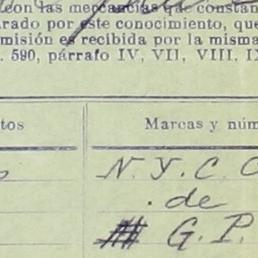 con las mercancías que constan
arado por este conocimiento, que
misión es recibida por la misma
. 590, párrafo IV, VII, VIII, IX
tos Marcas y núm
N. Y. C. C
. de
# G. P.